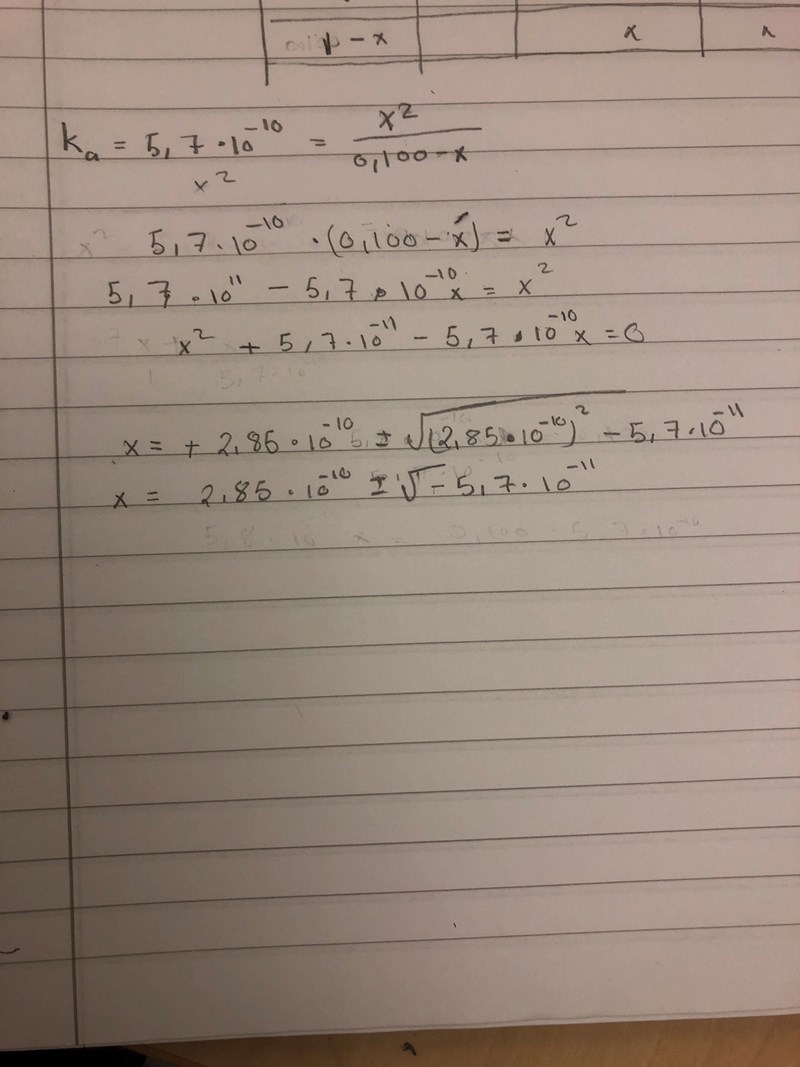 - x x x
Ka = 5,7 · 10^-10 = x^2 / 0,100-x
x^2
5,7 · 10^-10 · (0,100 - x) = x^2
5,7 · 10^11 - 5,7 · 10^-10 x = x^2
x^2 + 5,7 · 10^-11 - 5,7 · 10^-10 x = 0
x = + 2,85 · 10^-10 ± √(2,85 · 10^-10)^2 - 5,7 · 10^-11
x = 2,85 · 10^-10 ± √-5,7 · 10^-11